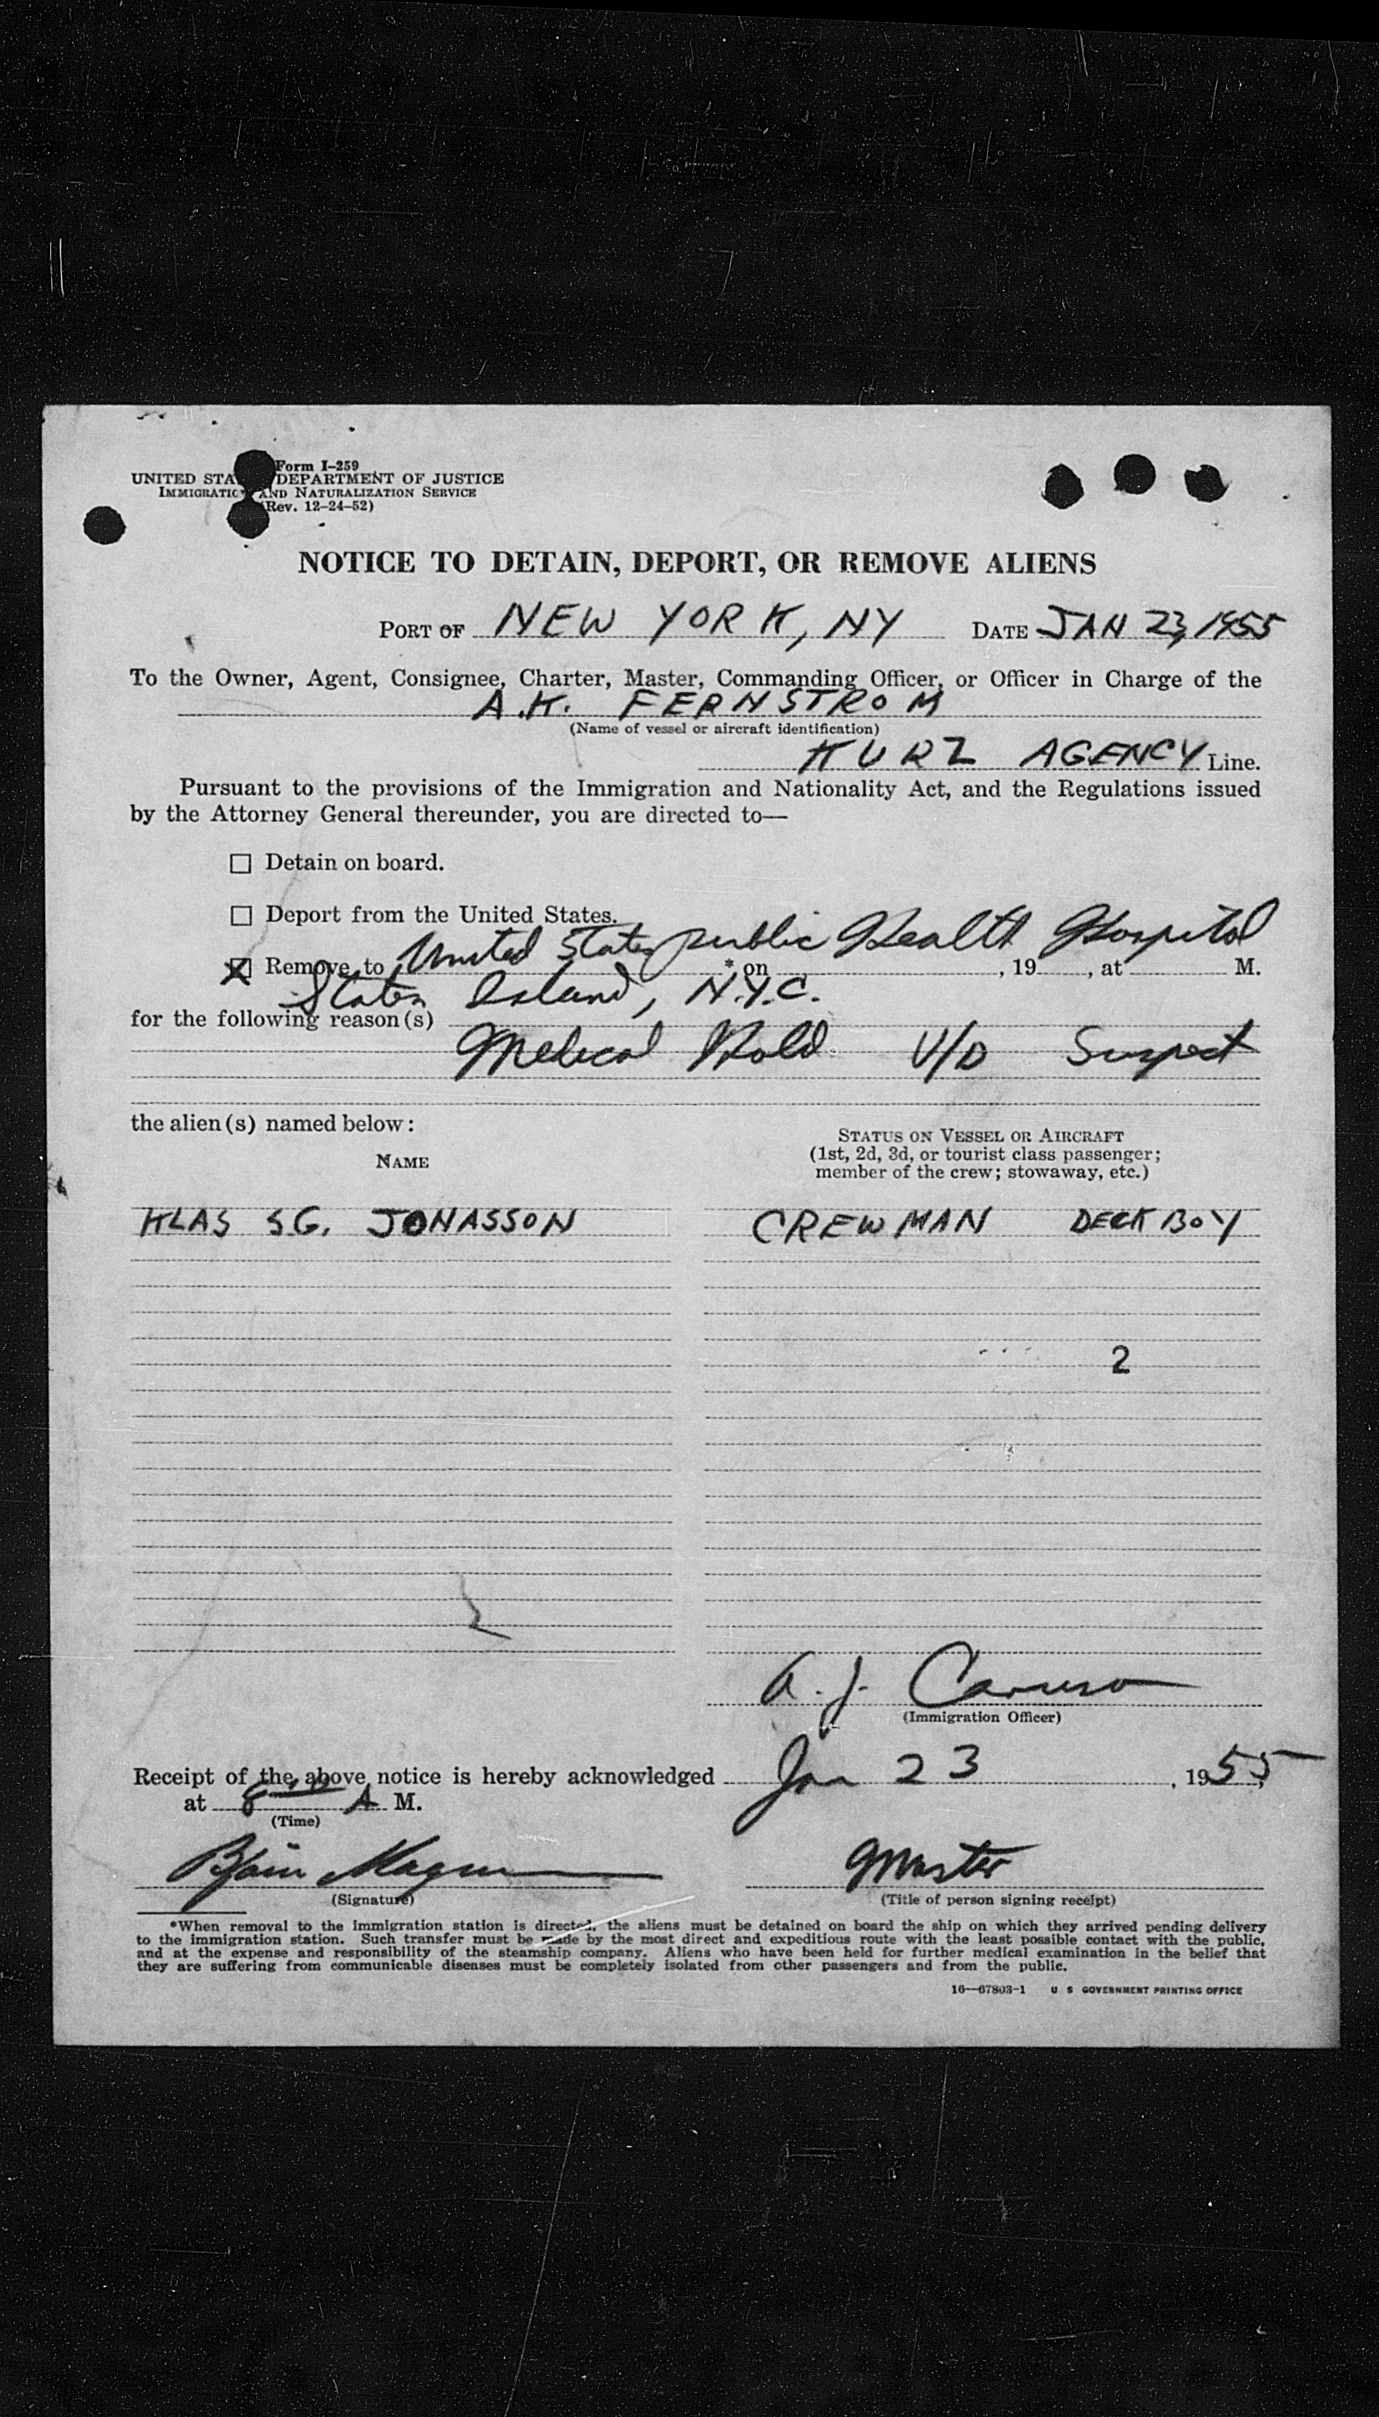 Form I-259
UNITED STA DEPARTMENT OF JUSTICE
IMMIGRATIO AND NATURALIZATION SERVICE
(Rev. 12-24-52)
NOTICE TO DETAIN, DEPORT, OR REMOVE ALIENS
PORT OF NEW YORK, NY DATE JAN 23, 1955
To the Owner, Agent, Consignee, Charter, Master, Commanding Officer, or Officer in Charge of the
A.K. FERNSTROM
(Name of vessel or aircraft identification)
KURZ AGENCY Line.
Pursuant to the provisions of the Immigration and Nationality Act, and the Regulations issued
by the Attorney General thereunder, you are directed to—
☐ Detain on board.
☐ Deport from the United States.
☒ Remove to United States public Health Hospital * on , 19 , at M.
Staten Island, N.Y.C.
for the following reason(s)
Medical Hold V/D Suspect
the alien(s) named below:
NAME
STATUS ON VESSEL OR AIRCRAFT
(1st, 2d, 3d, or tourist class passenger;
member of the crew; stowaway, etc.)
KLAS S.G. JONASSON CREWMAN DECK BOY
2
A. J. Caruso
(Immigration Officer)
Receipt of the above notice is hereby acknowledged Jan 23, 1955,
at 8 A M.
(Time)
Master
(Signature) (Title of person signing receipt)
*When removal to the immigration station is directed, the aliens must be detained on board the ship on which they arrived pending delivery
to the immigration station. Such transfer must be made by the most direct and expeditious route with the least possible contact with the public,
and at the expense and responsibility of the steamship company. Aliens who have been held for further medical examination in the belief that
they are suffering from communicable diseases must be completely isolated from other passengers and from the public.
16—67803-1 U S GOVERNMENT PRINTING OFFICE